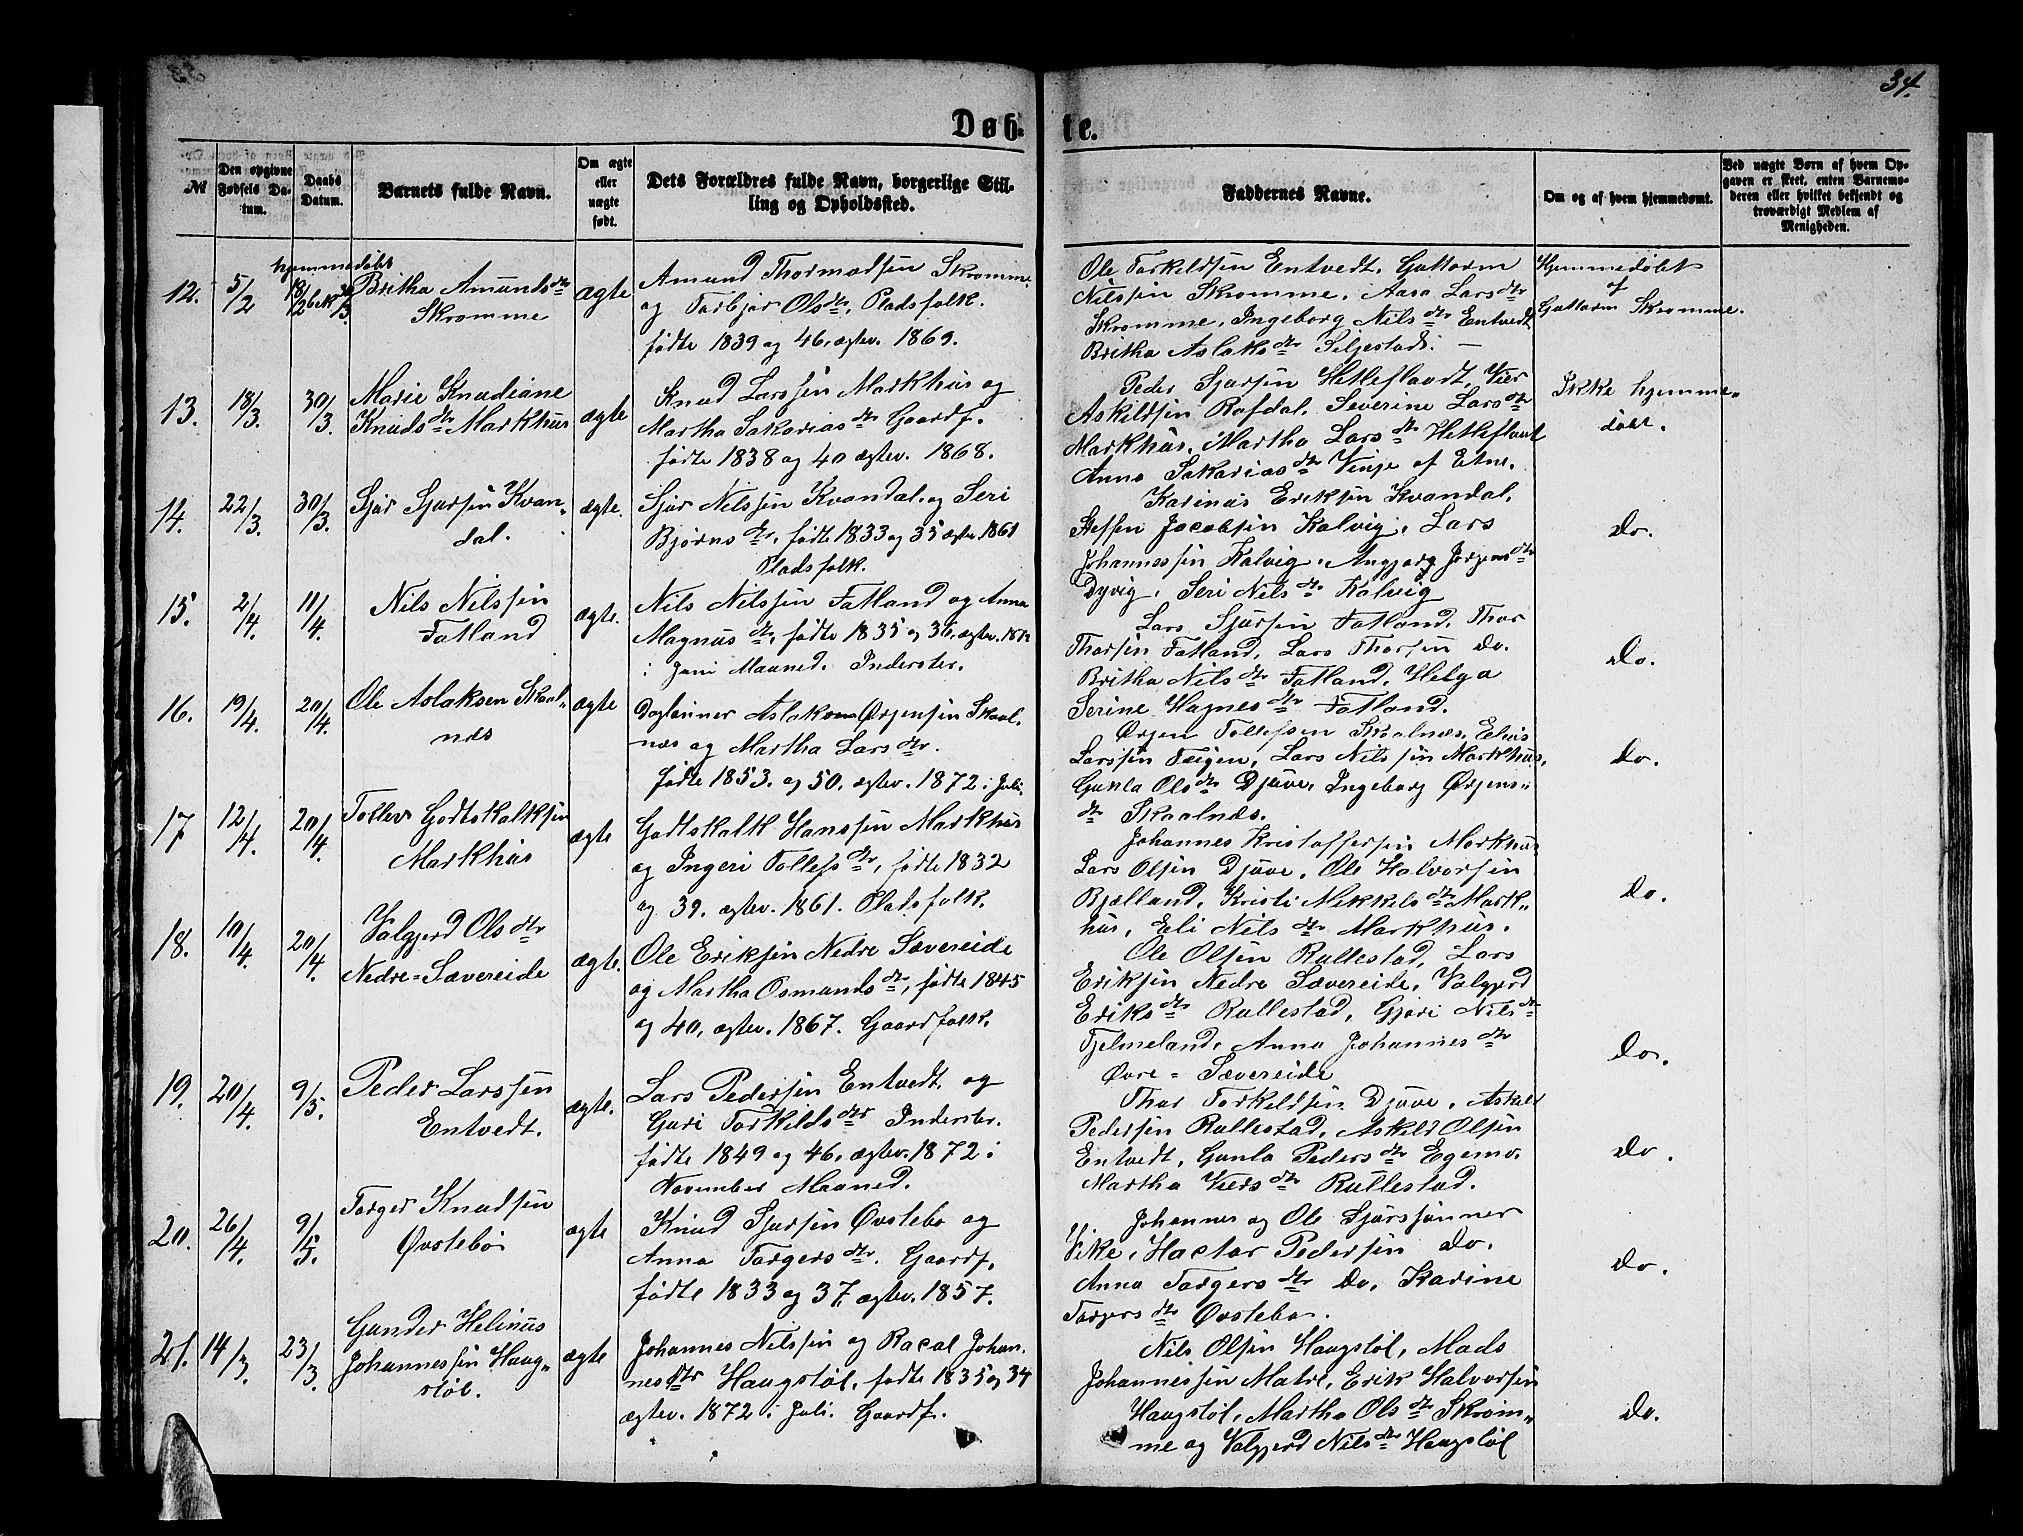 34.
Døb-
te.
№
Den opgivne Fødsels Datum.
Daabs Datum.
Barnets fulde Navn.
Om ægte eller uægte født.
Dets Forældres fulde Navn, borgerlige Stilling og Opholdssted.
Faddernes Navne.
Om og af hvem hjemmedøbt.
Ved uægte Børn af hvem Opgaven er skeet, enten Barnemoderen eller hvilket bekjendt og troværdigt Medlem af Menigheden.
12.
5/2
hjemmedøbt
18/2 bek.
Britha Amundsdtr
Skromme
ægte
Amund Thormodsen Skromme
og Torbjør Olsdtr, Pladsfolk.
fødte 1839 og 46, ægtev. 1869.
Ole Torkildsen Entvedt, Guttorm
Nilssen Skromme, Aasa Larsdtr
Skromme, Ingeborg Nilsdtr Entvedt
Britha Aslaksdtr Seljestad. —
Hjemmedøbt
af
Guttorm Skromme.
13.
18/3.
30/3.
Marie Knudiane
Knudsdtr Markhus
ægte
Knud Larssen Markhus og
Martha Sakariasdtr Gaardf.
fødte 1838 og 40 ægtev. 1868.
Peder Sjursen Hetleflaadt, Vier
Askildsen Rafdal, Severine Larsdtr
Markhus, Martha Larsdtr Hetleflaat
Anna Sakariasdtr Vinje af Etne.
Ikke hjemme-
døbt.
14.
22/3.
30/3.
Sjur Sjursen Kvan-
dal.
ægte.
Sjur Nilssen Kvandal og Seri
Bjørnsdtr, fødte 1833 og 35 ægtev. 1861
Pladsfolk.
Karinus Eriksen Kvandal,
Steffen Jacobsen Kalvig, Lars
Johannessen Kalvig, Angjerg Jørgensdtr
Dyvig, Seri Nilsdtr Kalvig
Do.
15.
2/4.
11/4.
Nils Nilssen
Fatland
ægte.
Nils Nilssen Fatland og Anna
Magnusdtr, fødte 1835 og 36, ægtev. 1872
i Juni Maaned. Inderster.
Lars Sjursen Fatland, Thor
Thorsen Fatland, Lars Thorsen do.
Britha Nilsdtr Fatland, Helga
Serine Hagnesdtr Fatland.
Do.
16.
19/4.
20/4.
Ole Aslaksen Skaal-
næs
ægte
Daglønner Aslak Ørjensen Skaal-
næs og Martha Larsdtr.
fødte 1853. og 50, ægtev. 1872 i Juli.
Ørjen Tollefsen Skaalnæs, Elias
Larssen Teigen, Lars Nilssen Markhus,
Gunla Olsdtr Djuve, Ingeborg Ørjens-
dtr Skaalnæs.
Do.
17
12/4.
20/4.
Tollev Godtskalksen
Markhus
ægte
Godtskalk Hanssen Markhus
og Ingeri Tollefsdtr, fødte 1832
og 39. ægtev. 1861. Pladsfolk.
Johannes Kristoffersen Markhus
Lars Olsen Djuve, Ole Halvorsen
Bjelland, Kristi Nikkelsdtr Mark-
hus, Eli Nilsdtr Markhus.
Do.
18.
10/4.
20/4.
Valgjerd Olsdtr
Nedre-Sævereide
ægte.
Ole Eriksen Nedre Sævereide
og Martha Osmundsdtr, fødte 1845
og 40, ægtev. 1867. Gaardfolk.
Ole Olsen Rullestad, Lars
Eriksen Nedre Sævereide, Valgjerd
Eriksdtr Rullestad, Gjøri Nilsdtr
Fjelmeland, Anna Johannesdtr
Øvre-Sævereide
Do.
19.
20/4.
9/5.
Peder Larssen
Entvedt.
ægte.
Lars Pedersen Entvedt og
Guri Torkildsdtr Inderster.
fødte 1849 og 46, ægtev. 1872 i
November Maaned.
Thor Torkildsen Djuve, Askild
Pedersen Rullestad, Askild Olsen
Entvedt, Gunla Pedersdtr Egemo.
Martha Viersdtr Rullestad.
Do.
20.
26/4.
9/5.
Torger Knudsen
Øvstebø
ægte
Knud Sjursen Øvstebø og
Anna Torgersdtr. Gaardf.
fødte 1833 og 37, ægtev. 1857.
Johannes og Ole Sjurssønner
Vike, Hactor Pedersen do.
Anna Torgersdtr do, Karine
Torgersdtr Øvstebø.
Do.
21.
14/3.
23/3.
Gunder Helinus
Johannessen Haug-
støl.
ægte
Johannes Nilssen og Racal Johan-
nesdtr Haugstøl, fødte 1835 og 34
ægtev. 1872 i Juli. Gaardf.
Nils Olsen Haugstøl, Mads
Johannessen Matre, Erik Halvorsen
Haugstøl, Martha Olsdtr Skrom-
me og Valgjerd Nilsdtr Haugstøl
Do.